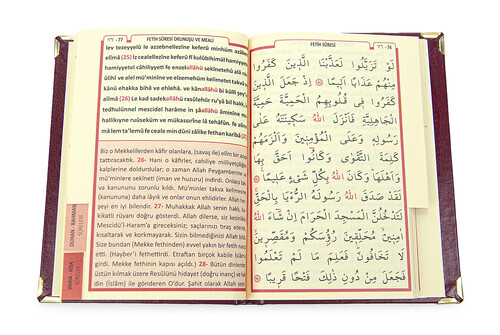 ٧٦ - 77 FETİH SÛRESİ OKUNUŞU VE MEALİ
lev tezeyyelû le azzebnellezîne keferû minhüm azâben
elîmâ (25) İz cealellezîne keferû fî kulûbihimül hamiyyete
hamiyyetel câhiliyyeti fe enzelallâhü sekînetehû alâ
ûlihî ve alel mü'minîne ve elzemehüm kelimetet takvâ
kânû ehakka bihâ ve ehlehâ. ve kânallâhü bi külli şey'in
alîmâ (26) Le kad sadekallâhü rasûlehür ru'yâ bil hakk,
tedhulünnel mescidel harâme in şâallâhü âminîne
hallikıyne ruûseküm ve mükassırîne lâ tehâfûn. fe alime
mâ lem ta'lemû fe ceale min dûni zâlike fethan karîbâ (27)
Biz o Mekkelilerden kâfir olanlara, (savaş ile) elîm bir azap
tattıracaktık. 26- Hani o kâfirler, cahiliye milliyetçiliğini,
kalplerine doldurdular; o zaman Allah Peygamberine ve
mü'minlere sekîneti (iman ve huzuru) indirdi. Onlara takva
ve kanununu zorunlu kıldı. Mü'minler takva kelimesine
(kanununa) daha lâyık ve onlar onun ehildirler. Allah her
şeyi en iyi bilendir. 27- Muhakkak Allah Resûlünün
kikatli rüyanı doğru gösterdi. Allah dilerse, siz kesinlikle
Mescidü'l-Haram'a gireceksiniz; saçlarınızı tıraş ederek,
kısaltarak ve korkmayarak. Sizin bilmediğinizi Allah bildi.
Size bundan (Mekke fethinden) evvel yakın bir fetih nasip
etti. (Hayber'i fethettirdi. Etraftan birçok kabile İslâm'a
girdi. Mekke fethinin kapısı açıldı.) 28- Bütün dinlerden
üstün kılmak üzere Resûlünü hidayet (doğru inanç) ve hak
din (İslâm) ile gönderen O'dur. Şahit olarak Allah yeter.
DUHAN - RAHMAN
SÛRELERİ
FETİH SÛRESİ
٧٥ - 76
لَوْ تَزَيَّلُوا لَعَذَّبْنَا الَّذِينَ كَفَرُوا
مِنْهُمْ عَذَابًا اَلِيمًا ﴿٢٥﴾ اِذْ جَعَلَ الَّذِينَ
كَفَرُوا فِي قُلُوبِهِمُ الْحَمِيَّةَ حَمِيَّةَ
الْجَاهِلِيَّةِ فَاَنْزَلَ اللهُ سَكِينَتَهُ عَلٰى
رَسُولِهِ وَعَلَى الْمُؤْمِنِينَ وَاَلْزَمَهُمْ
كَلِمَةَ التَّقْوٰى وَكَانُوا اَحَقَّ بِهَا
وَاَهْلَهَا وَكَانَ اللهُ بِكُلِّ شَيْءٍ عَلِيمًا ﴿٢٦﴾
لَقَدْ صَدَقَ اللهُ رَسُولَهُ الرُّءْيَا بِالْحَقِّ
لَتَدْخُلُنَّ الْمَسْجِدَ الْحَرَامَ اِنْ شَاءَ اللهُ
اٰمِنِينَ مُحَلِّقِينَ رُؤُسَكُمْ وَمُقَصِّرِينَ
لَا تَخَافُونَ فَعَلِمَ مَا لَمْ تَعْلَمُوا
فَجَعَلَ مِنْ دُونِ ذٰلِكَ فَتْحًا قَرِيبًا ﴿٢٧﴾